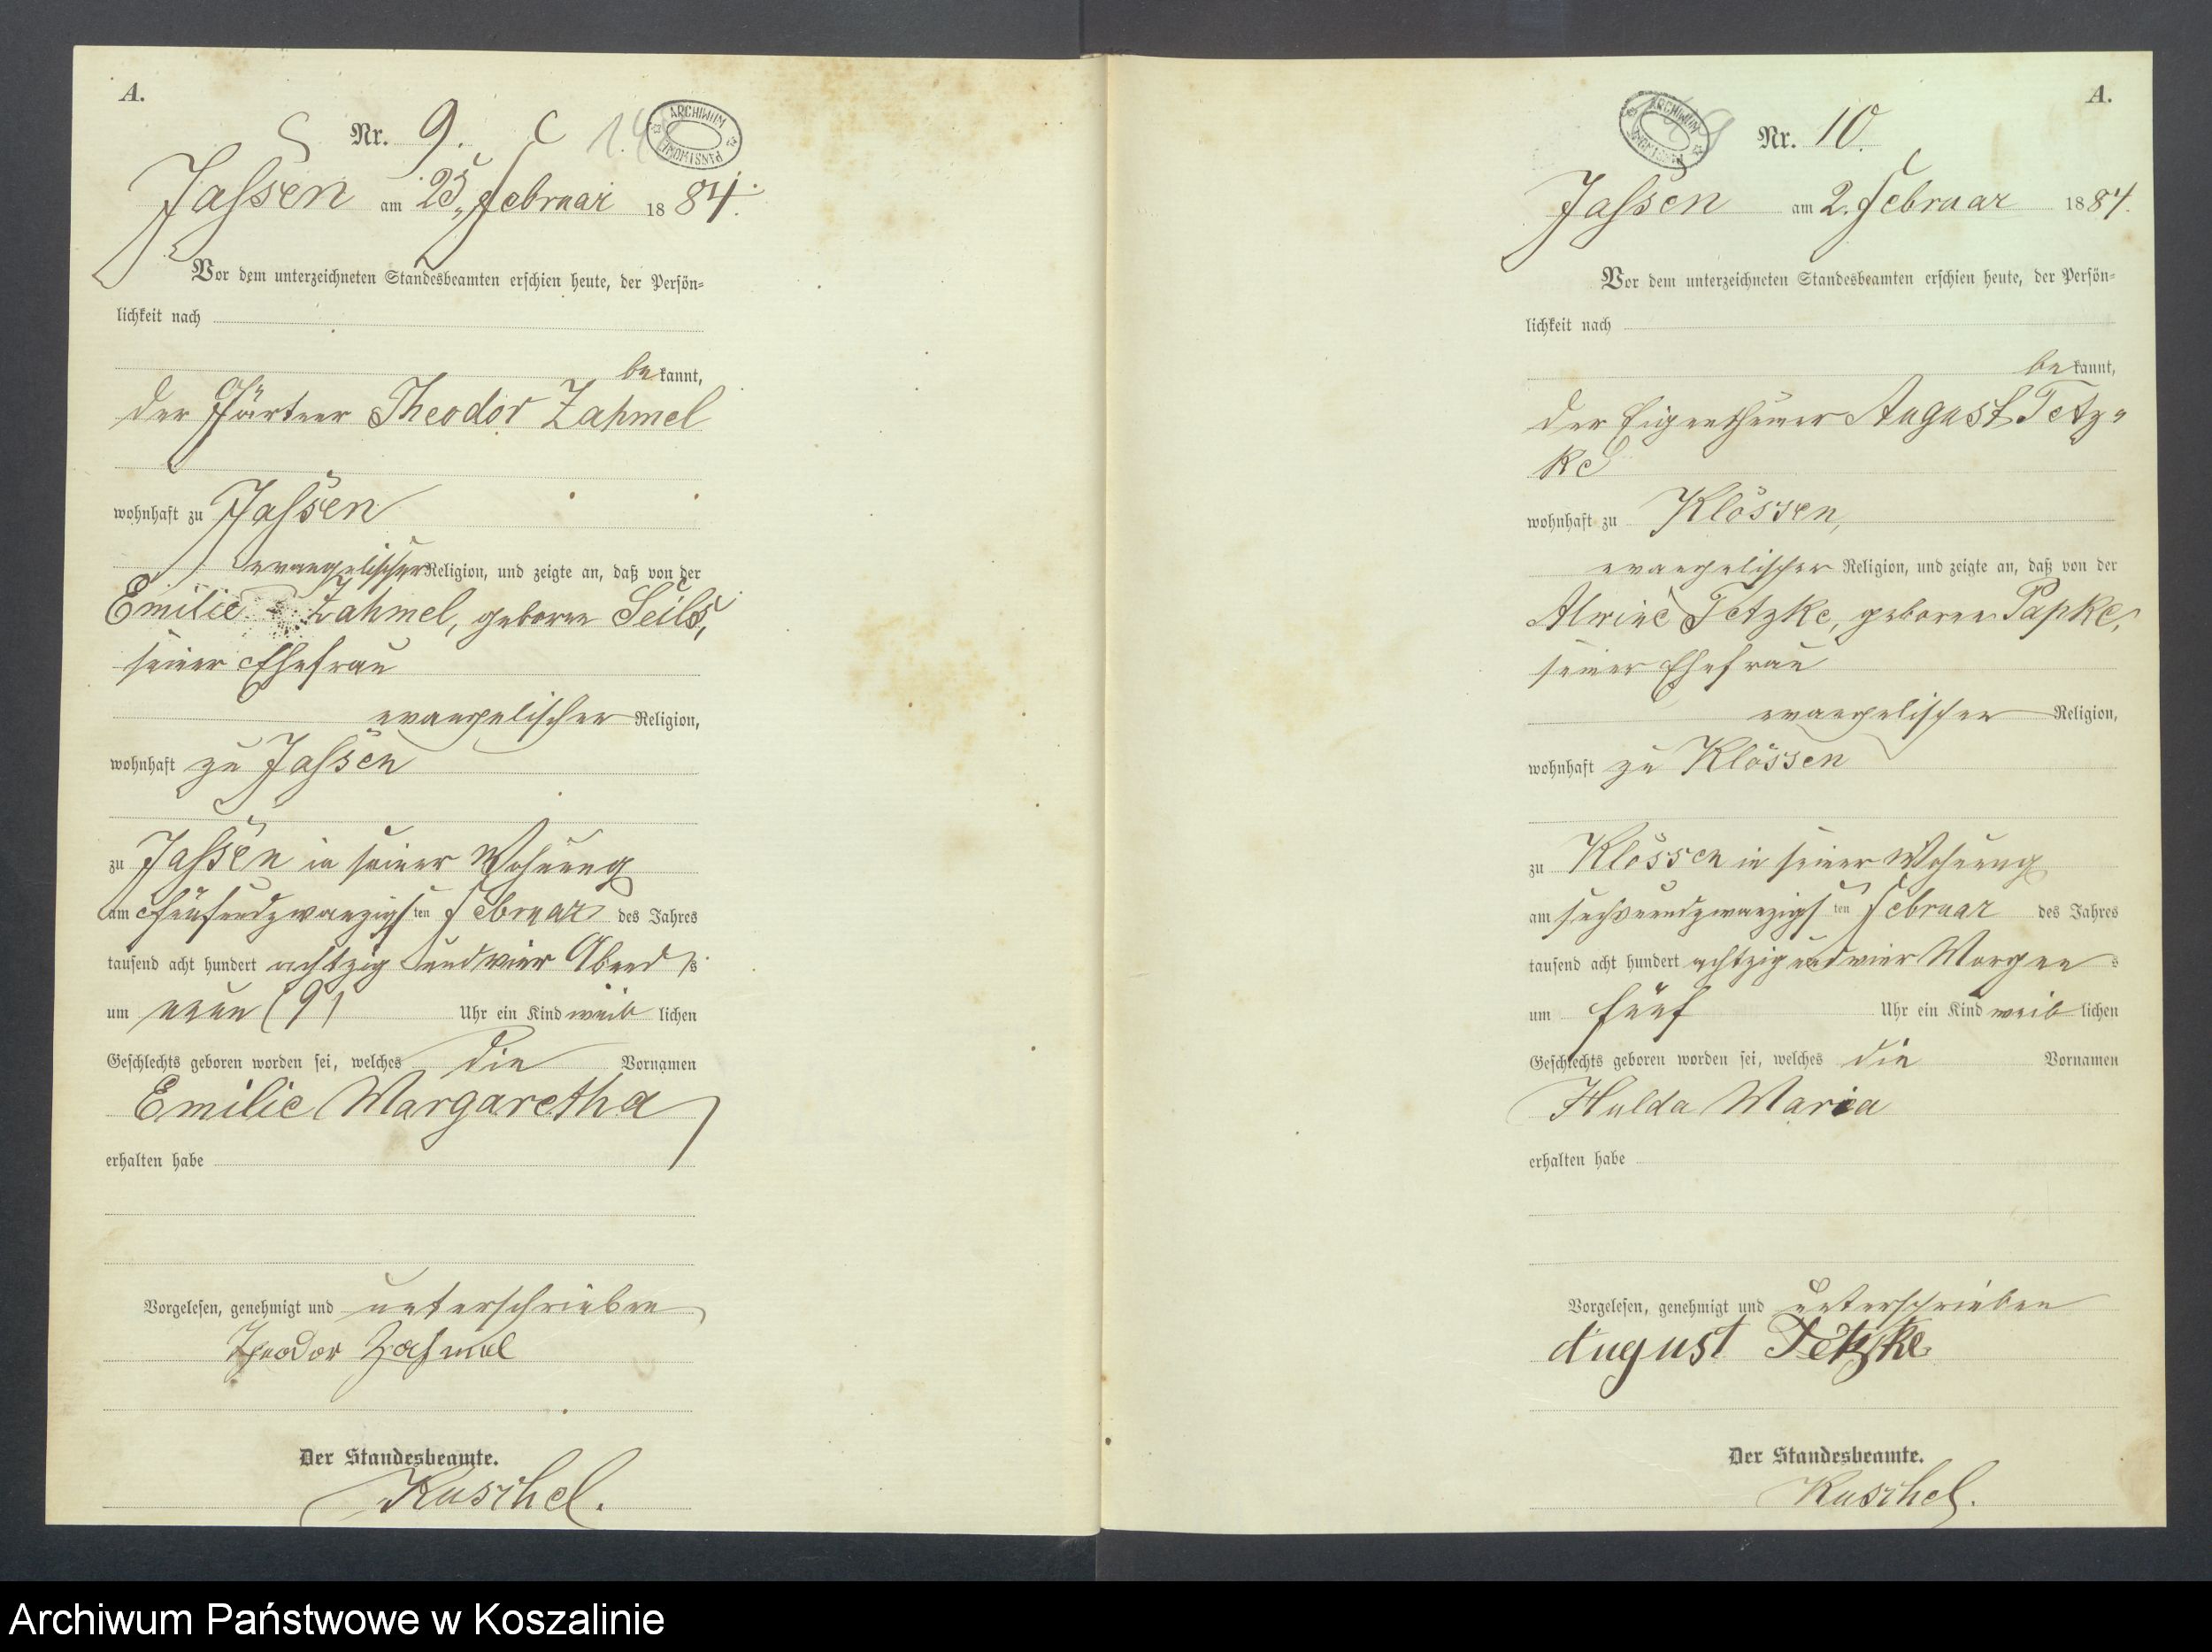 A.
Nr. 9.
Jassen am 25. Februar 1884.
Vor dem unterzeichneten Standesbeamten erschien heute, der Persön-
lichkeit nach
bekannt,
der Gärtner Theodor Zahmel
wohnhaft zu Jassen
evangelischer Religion, und zeigte an, daß von der
Emilie Zahmel, geborne Seils,
seiner Ehefrau
evangelischer Religion,
wohnhaft zu Jassen
zu Jassen in seiner Wohnung
am fünfundzwanzigsten Februar des Jahres
tausend acht hundert achtzig und vier Abends
um neun (9) Uhr ein Kind weiblichen
Geschlechts geboren worden sei, welches die Vornamen
Emilie Margaretha
erhalten habe
Vorgelesen, genehmigt und unterschrieben
Theodor Zahmel
Der Standesbeamte.
Kuschel.
ARCHIWUM PAŃSTWOWE
A.
Nr. 10.
Jassen am 2. Februar 1884.
Vor dem unterzeichneten Standesbeamten erschien heute, der Persön-
lichkeit nach
bekannt,
der Eigenthümer August Tetz-
ke
wohnhaft zu Klössen,
evangelischer Religion, und zeigte an, daß von der
Alwine Tetzke, geborne Papke,
seiner Ehefrau
evangelischer Religion,
wohnhaft zu Klössen
zu Klössen in seiner Wohnung
am sechsundzwanzigsten Februar des Jahres
tausend acht hundert achtzig und vier Morgens
um fünf Uhr ein Kind weiblichen
Geschlechts geboren worden sei, welches die Vornamen
Hulda Maria
erhalten habe
Vorgelesen, genehmigt und unterschrieben
August Tetzke
Der Standesbeamte.
Kuschel.
Archiwum Państwowe w Koszalinie